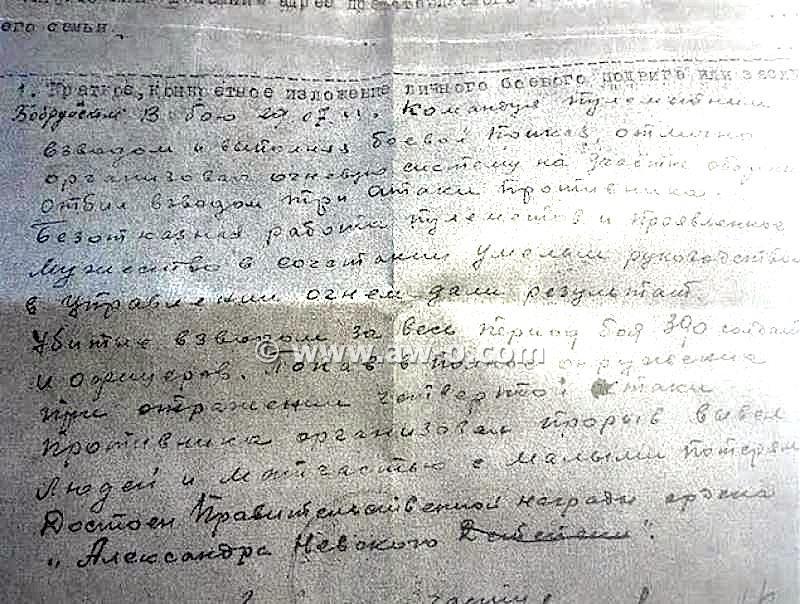 адрес
его семьи.
1. Краткое, конкретное изложение личного боевого подвига или заслуг
В бою 29.07.41. Командуя пулеметным
взводом и выполняя боевой приказ, отлично
организовал огневую систему на участке обороны
Отбил взводом три атаки противника.
Безотказная работа пулеметов и проявленное
мужество в сочетании умелым руководством
в управлении огнем дали результат.
Убитых взводом за весь период боя 390 солдат
и офицеров. Попав в полное окружение
при отражении четвертой атаки
противника организовал прорыв вывел
людей и матчастью с малыми потерями
Достоен Правительственной награды ордена
„Александра Невского".
© www.aw-p.com